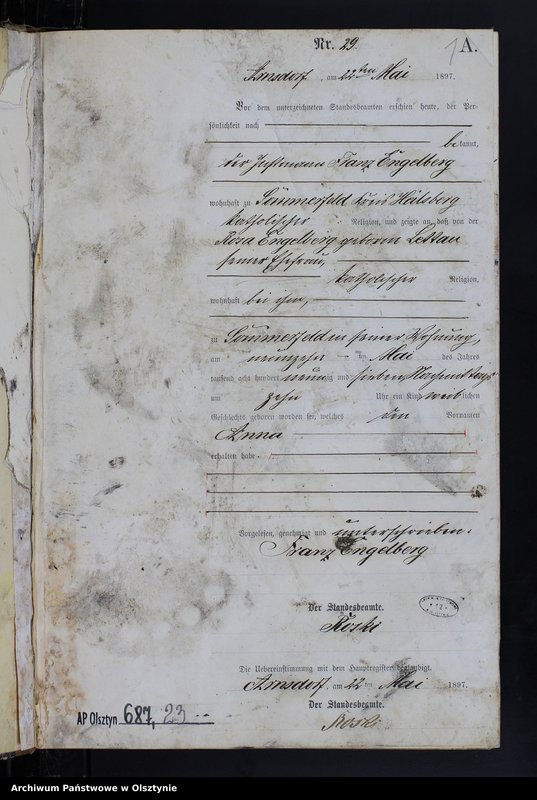 Nr. 29.
A.
Arnsdorf, am 22ten Mai 1897.
Vor dem unterzeichneten Standesbeamten erschien heute, der Per-
sönlichkeit nach
bekannt,
der Franz Engelberg
wohnhaft zu Sommerfeld Kreis Heilsberg
katholischer Religion, und zeigte an, daß von der
Rosa Engelberg geboren Lettau
seiner Ehefrau,
katholischer Religion,
wohnhaft bei ihm,
zu Sommerfeld in seiner Wohnung,
am neunzehn ten Mai des Jahres
tausend acht hundert neunzig und sieben Nachmittags
um zehn Uhr ein Kind weiblichen
Geschlechts geboren worden sei, welches den Vornamen
Anna
erhalten habe.
Vorgelesen, genehmigt und unterschrieben.
Franz Engelberg
Der Standesbeamte.
Die Uebereinstimmung mit dem Hauptregister beglaubigt.
Arnsdorf, am 22 ten Mai 1897.
Der Standesbeamte.
AP Olsztyn 687, 23
Archiwum Państwowe w Olsztynie